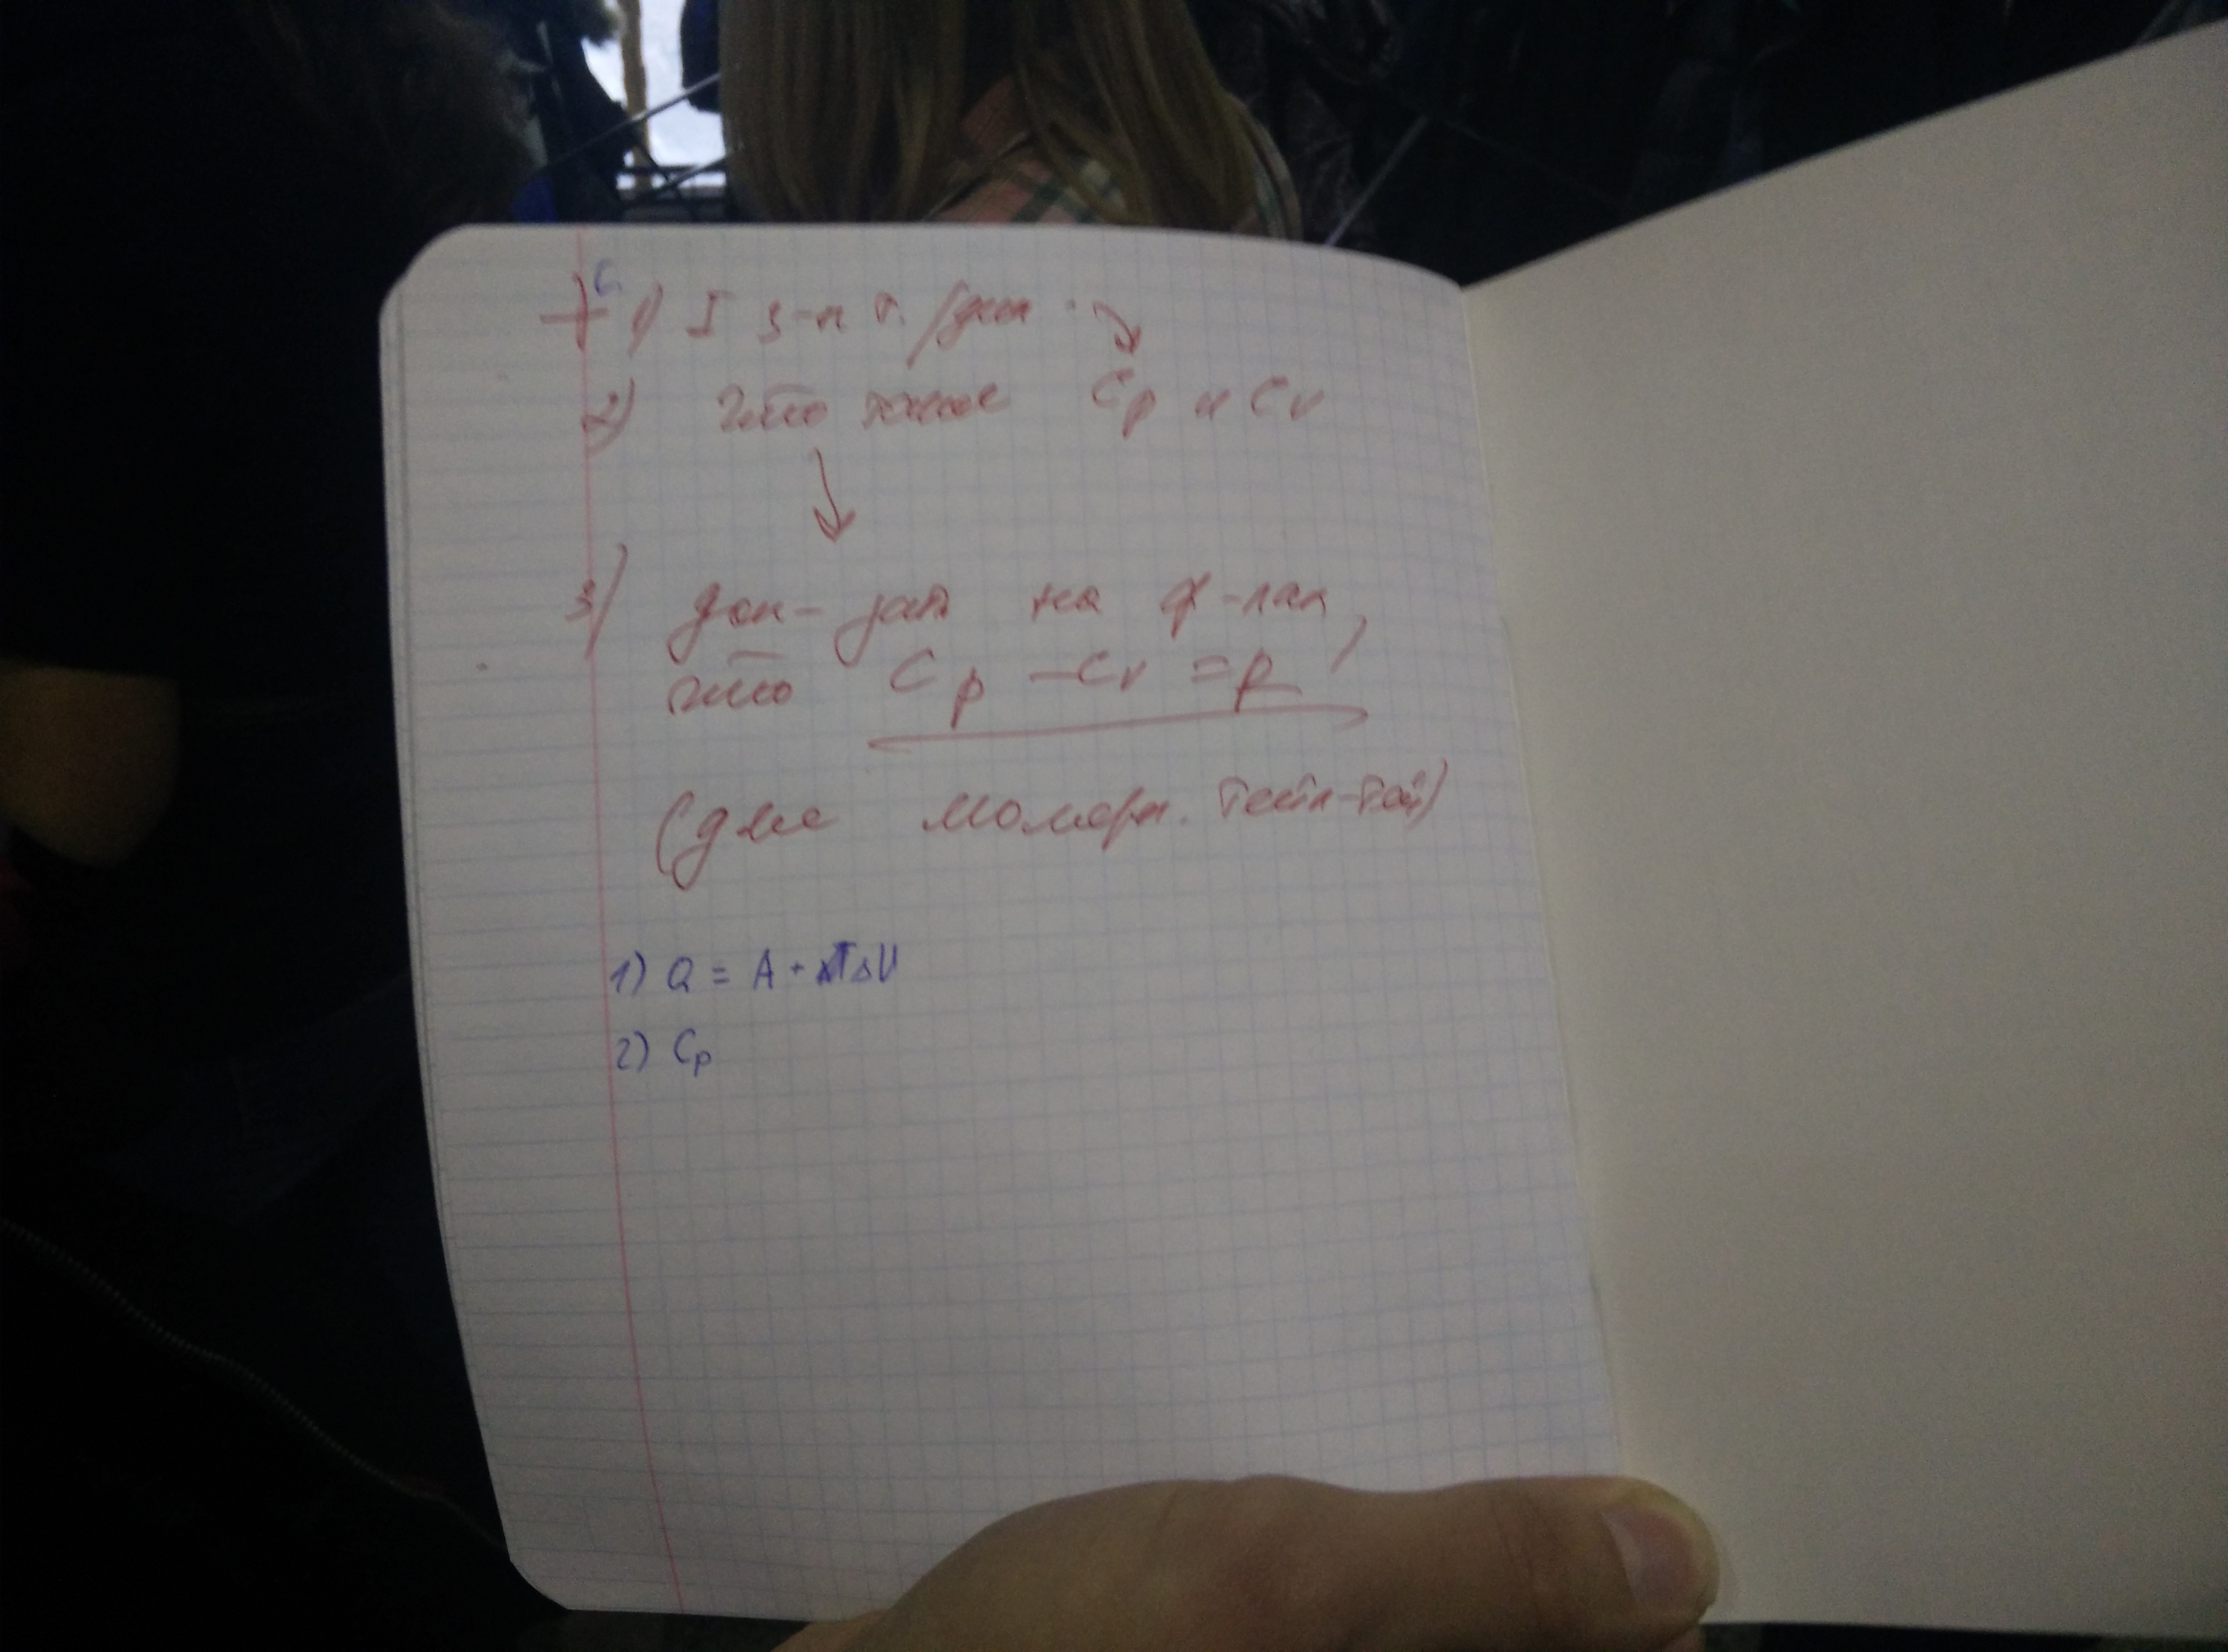 C.
1) I з-н т/дин.
2) что такое Cp и Cv
3) док-зать на ф-лах,
что Cp - Cv = R
(для молярн. тепл-тей)
1) Q = A + ΔU
2) Cp